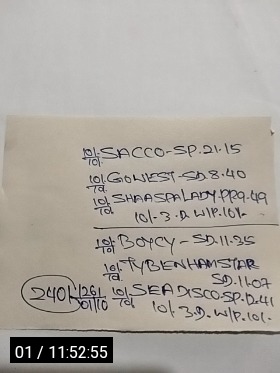 10/- SACCO-SP.21.15
10/-
10/- GOWEST-SD.8.40
10/-
10/- SHAASPALADY.PP.9.49
10/-
10/- 3.D. W/P.10/-
10/- BOYCY-SD.11.35
10/-
10/- TYBENHAMSTAR
10/- SD.11.07
10/- SEADISCO-SP.12.41
10/-
10/- 3.D. W/P.10/-
240/-
01 / 11:52:55